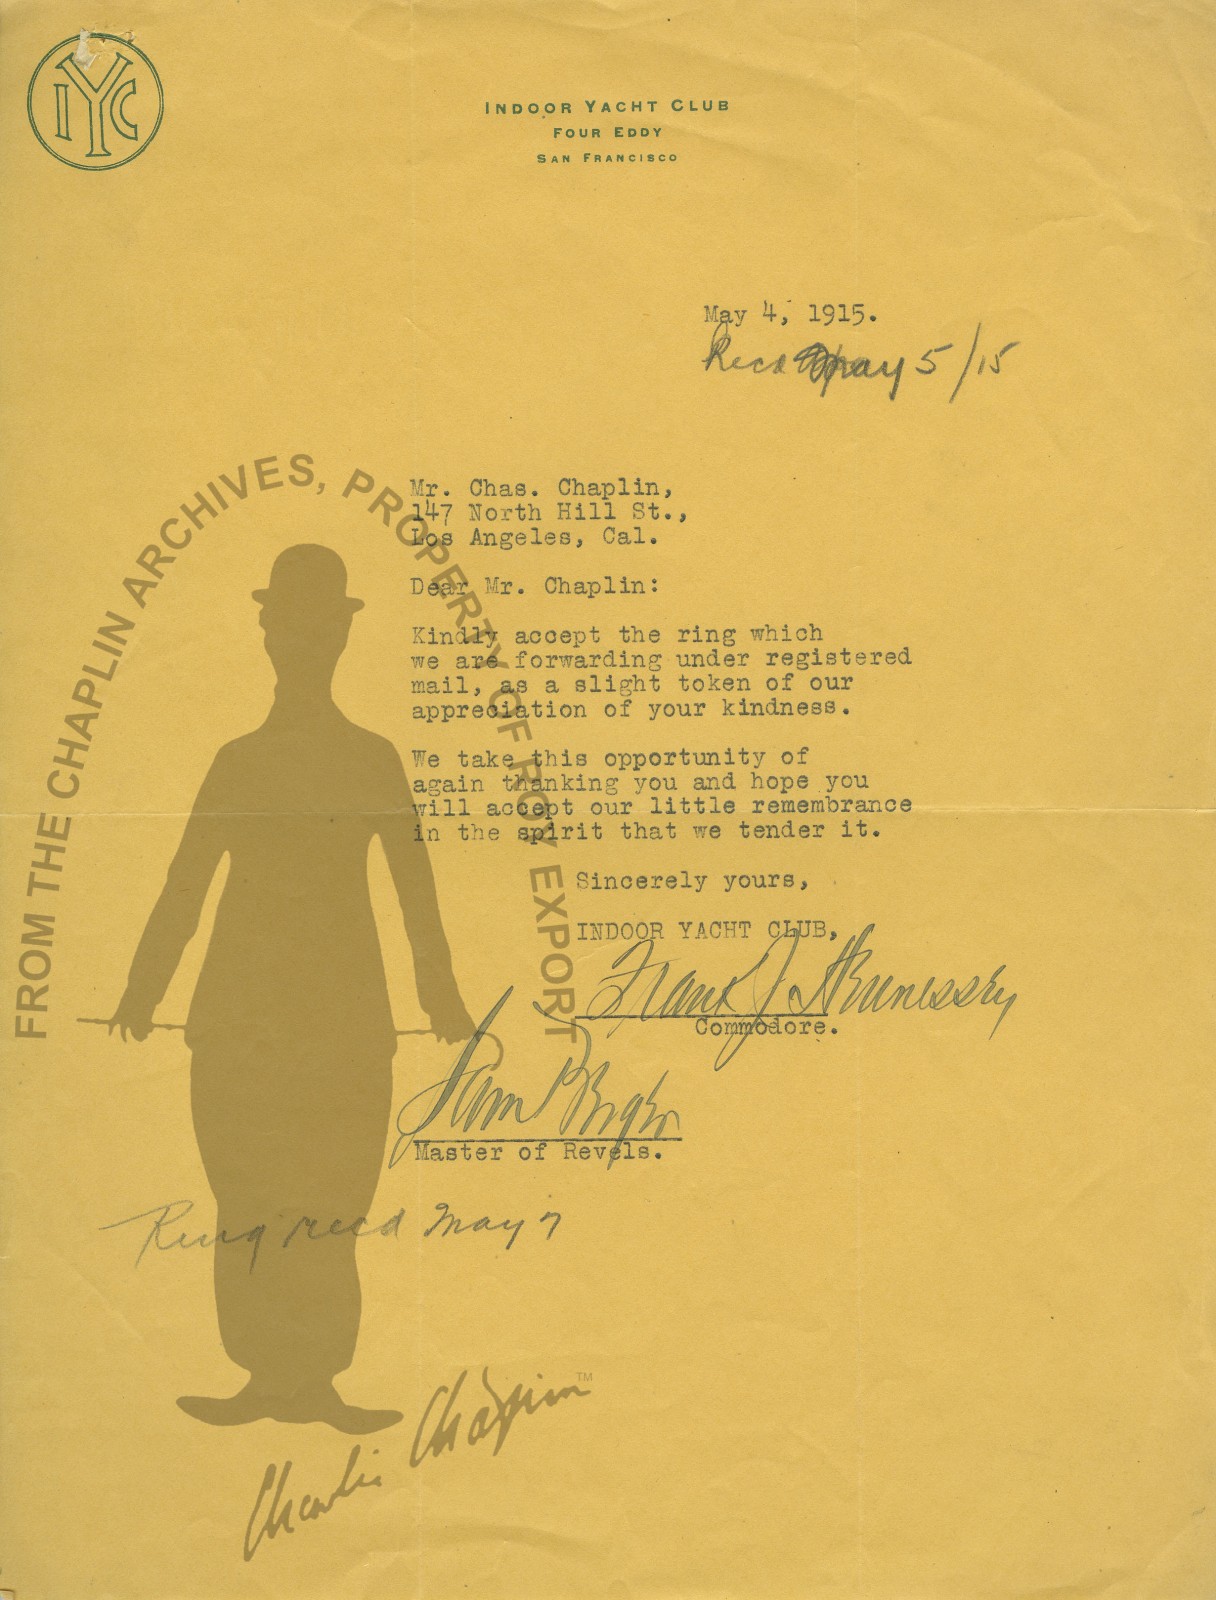 IYC
INDOOR YACHT CLUB
FOUR EDDY
SAN FRANCISCO
May 4, 1915.
Recd May 5/15
Mr. Chas. Chaplin,
147 North Hill St.,
Los Angeles, Cal.
Dear Mr. Chaplin:
Kindly accept the ring which
we are forwarding under registered
mail, as a slight token of our
appreciation of your kindness.
We take this opportunity of
again thanking you and hope you
will accept our little remembrance
in the spirit that we tender it.
Sincerely yours,
INDOOR YACHT CLUB,
Frank J. Hennessey
Commodore.
Sam
Master of Revels.
Ring recd May 7
FROM THE CHAPLIN ARCHIVES, PROPERTY OF ROY EXPORT
Charlie Chaplin TM